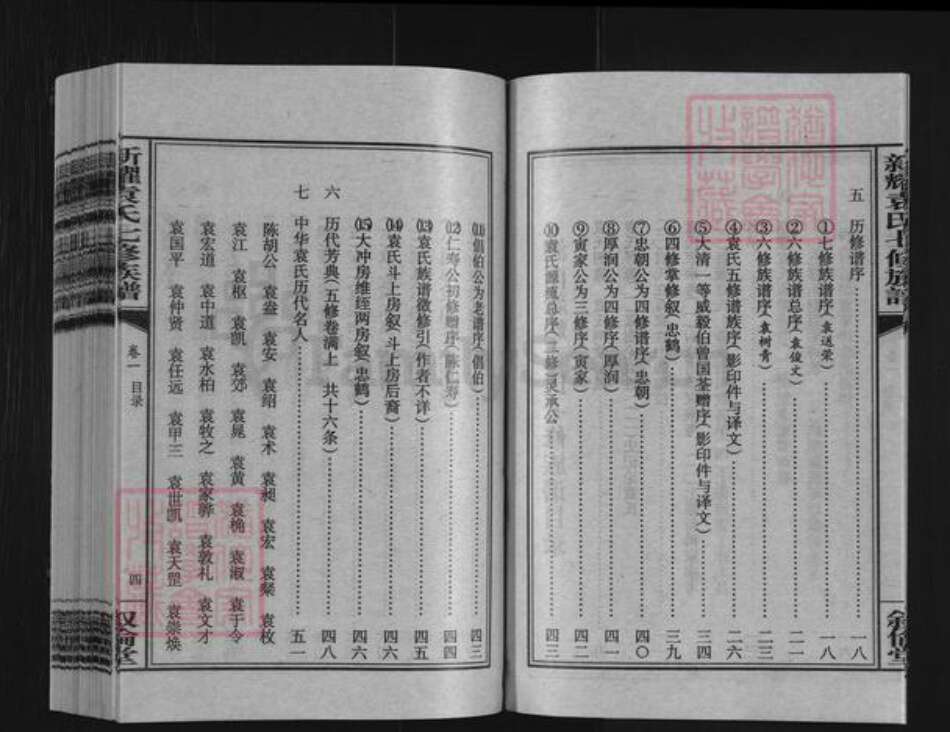 五 历修谱序 一八
①七修族谱序（袁送荣） 一八
②六修族谱总序（袁俊文） 二一
③六修族谱序（袁树青） 二三
④袁氏五修谱族序（影印件与译文） 二六
⑤大清一等威毅伯曾国荃赠序（影印件与译文） 三四
⑥四修掌修叙（忠鹤） 三九
⑦忠朝公为四修谱序（忠朝） 四〇
⑧厚润公为四修序（厚润） 四一
⑨寅家公为三修序（寅家） 四二
⑩袁氏源流总序（二修）灵承公 四三
⑪倡伯公为老谱序（倡伯） 四三
⑫仁寿公初修赠序（陈仁寿） 四四
⑬袁氏族谱徵修引（作者不详） 四五
⑭袁氏斗上房叙（斗上房后裔） 四六
⑮大冲房维绖两房叙（忠鹤） 四六
六 历代芳典（五修卷满上 共十六条） 四八
七 中华袁氏历代名人 五一
陈胡公 袁盎 袁安 袁绍 袁术 袁昶 袁宏 袁粲 袁枚
袁江 袁枢 袁凯 袁郊 袁晁 袁黄 袁桷 袁淑 袁于令
袁宏道 袁中道 袁水柏 袁牧之 袁家骅 袁敦礼 袁文才
袁国平 袁仲贤 袁任远 袁甲三 袁世凯 袁天罡 袁崇焕
卷一 目录
四
叙伦堂